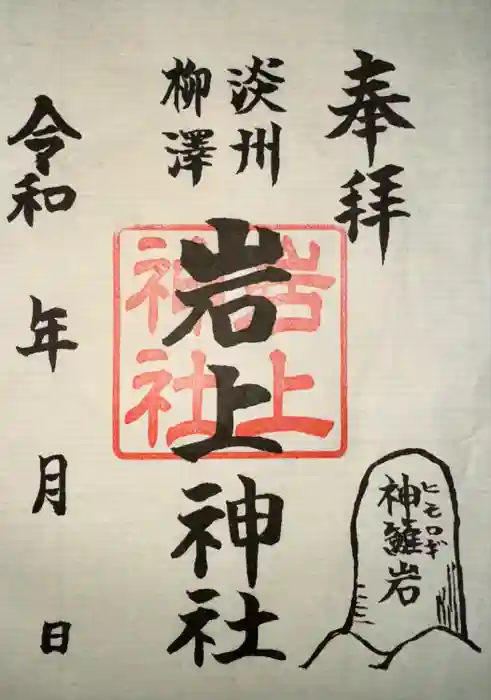 奉拝
淡州
柳澤
岩上神社
岩上
神社
神籬岩
ヒモロギ
令和 年 月 日